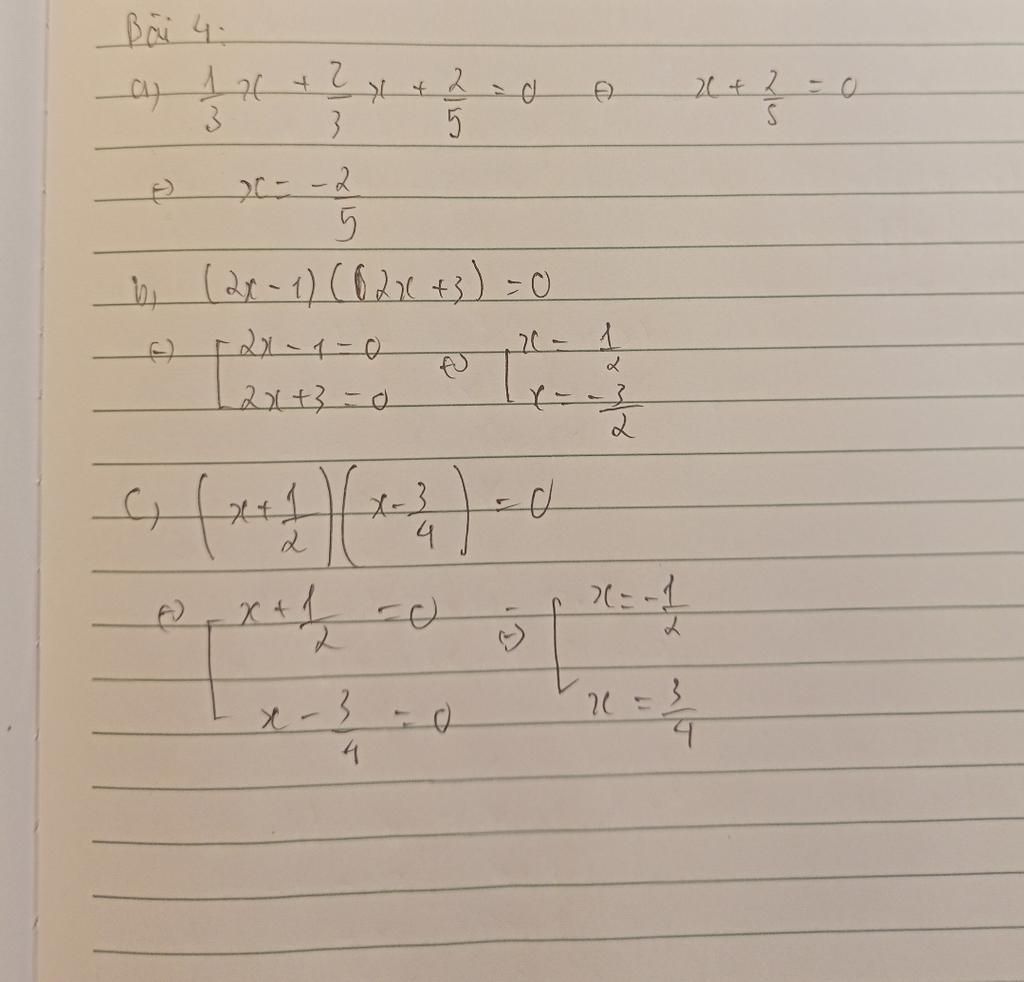 Bài 4:
a) 1/3 x + 2/3 x + 2/5 = 0 ⇔ x + 2/5 = 0
⇔ x = -2/5
b) (2x - 1)(2x + 3) = 0
⇔ [ 2x - 1 = 0 ⇔ [ x = 1/2
2x + 3 = 0 x = -3/2
c) (x + 1/2)(x - 3/4) = 0
⇔ [ x + 1/2 = 0 ⇔ [ x = -1/2
x - 3/4 = 0 x = 3/4